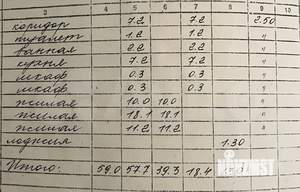 3 4 5 6 7 8 9 10
коридор 7.2 7.2 2.50
туалет 1.2 1.2 "
ванная 2.2 2.2 "
кухня 7.2 7.2 "
шкаф 0.3 0.3 "
шкаф 0.3 0.3 "
жилая 10.0 10.0 "
жилая 18.1 18.1 "
жилая 11.2 11.2 "
лоджия 1.30
Итого: 59.0 57.7 39.3 18.4